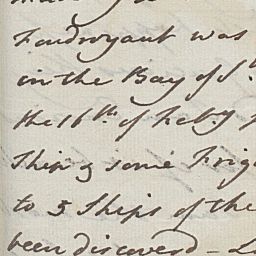 Foudroyant was
in the Bay of S
the 16th of Feby
Ship & some Frig
to 5 Ships of the
been discoverd - L